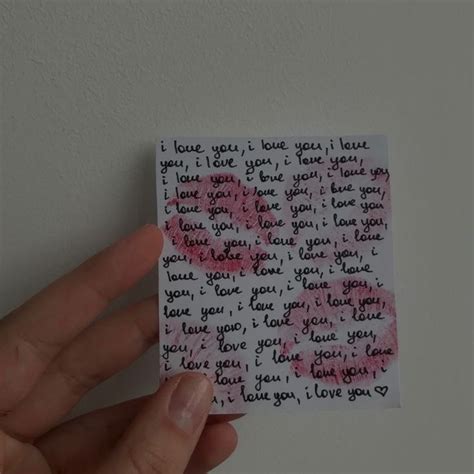 i love you, i love you, i love
you, i love you, i love you,
i love you, i love you, i love you
i love you, i love you, i love you,
you, i love you, i love you
i love you, i love you, i love you,
i love you, i love you, i love
you, i love you, i love you, i
love you, i love you, i love
you, i love you, i love you,
i love you, i love you, i love you,
i love you, i love you, i love
you, i love you, i love you,
i love you, i love you, i love
i love you, i love you, i
you, i love you, i love you ♡